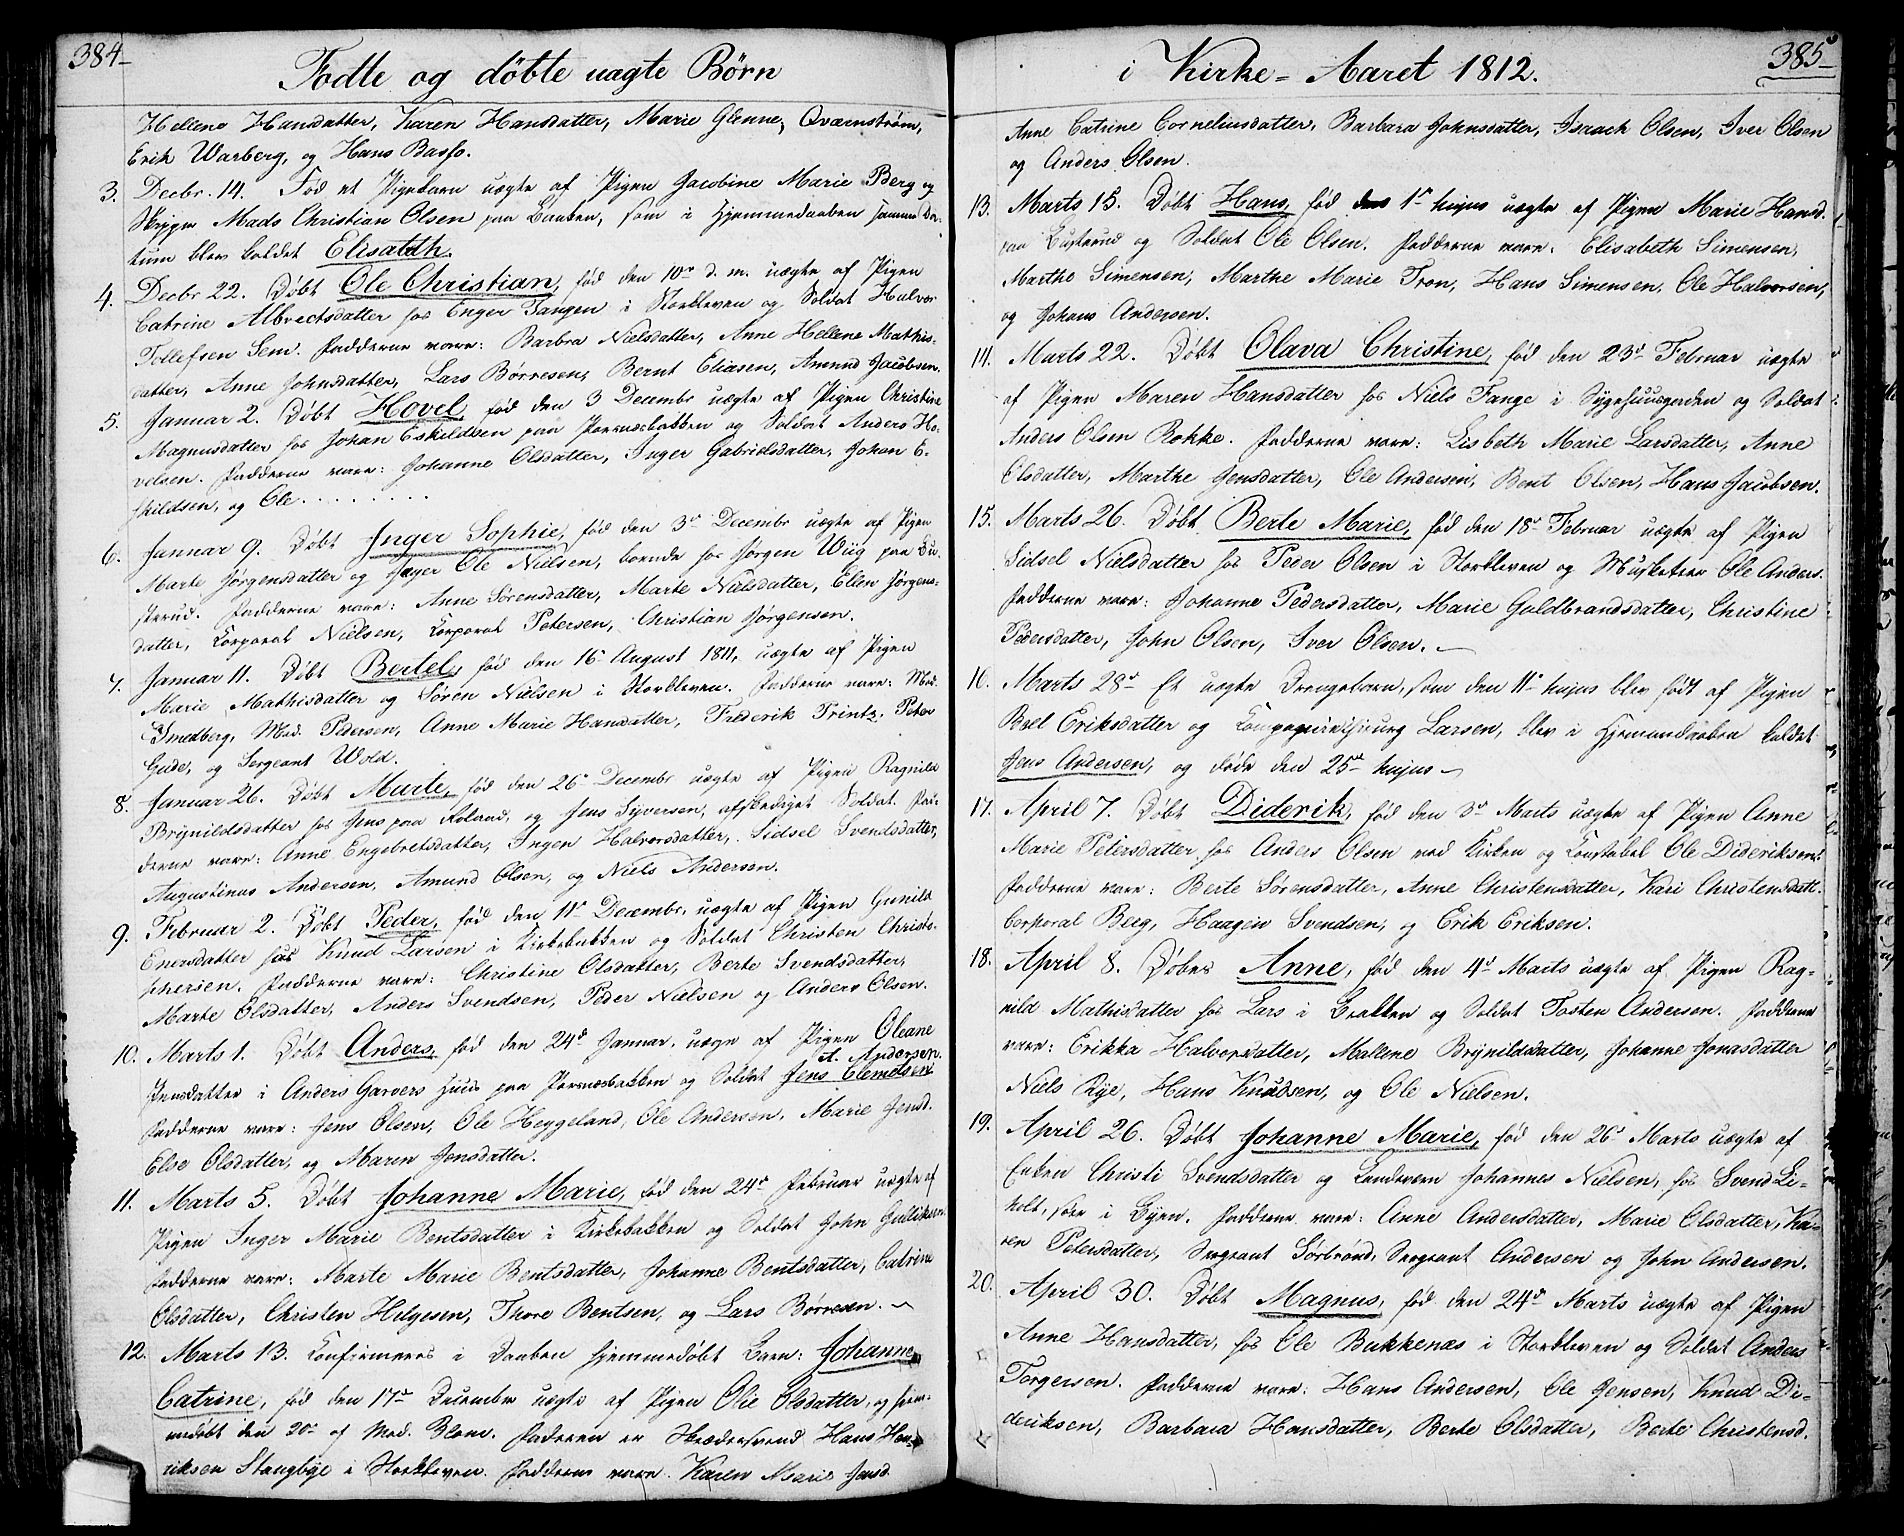 384
Fødte og døbte uægte Børn
Hellene Hansdatter, Karen Hansdatter, Marie Glenne, Qværnstrøm,
Erik Warberg, og Hans Basse.
3. Decbr. 14. Fød et Pigebarn uægte af Pigen Jacobine Marie Berg og
Mads Christian Olsen paa Banken, som i Hjemmedaaben samme Da-
tum blev kaldet Elisabeth.
4. Decbr 22. Døbt Ole Christian, fød den 10de d. m. uægte af Pigen
Catrine Albrectsdatter hos Enger Tangen i Storkleven og Soldat Halvor
Tollefsen Sem. Fadderne vare: Barbra Nielsdatter, Anne Hellene Mathis-
datter, Anne Johnsdatter, Lars Børresen, Bernt Eliasen, Amund Jacobsen.
5. Januar 2. Døbt Hovel, fød den 3 Decembr uægte af Pigen Christine
Magnusdatter hos Johan Eskildsen paa Pærnæsbakken og Soldat Anders Ho-
velsen. Fadderne vare: Johanne Olsdatter, Inger Gabrielsdatter, Johan E-
skildsen, og Ole . . . . . . . .
6. Januar 9. Døbt Inger Sophie, fød den 3de Decembr uægte af Pigen
Marte Jørgensdatter og Jæger Ole Nielsen, boende hos Jørgen Wiig paa Bu-
sterud. Fadderne vare: Anne Sørensdatter, Marte Nielsdatter, Ellen Jørgens-
datter, Korporal Nielsen, Korporal Petersen, Christian Jørgensen.
7. Januar 11. Døbt Bertel, fød den 16 August 1811, uægte af Pigen
Marie Mathisdatter og Søren Nielsen i Storkleven. Fadderne vare: Mad.
Smedberg, Mad. Pedersen, Anne Marie Hansdatter, Frederik Printz, Peter
Gude, og Sergeant Wold.
8. Januar 26. Døbt Marte, fød den 26 Decembr uægte af Pigen Ragnild
Brynildsdatter hos Jens paa Roland, og Jens Syversen, afskediget Soldat. Fad-
derne vare: Anne Engebretsdatter, Ingen Halvorsdatter, Sidsel Svendsdatter,
Augustinus Andersen, Amund Olsen, og Niels Andersen.
9. Februar 2. Døbt Peder, fød den 11te Decembr, uægte af Pigen Gunild
Enersdatter hos Knud Larsen i Kirkebakken og Soldat Christen Christo-
phersen. Fadderne vare: Christine Olsdatter, Berte Svendsdatter,
Marte Olsdatter, Anders Svendsen, Peder Nielsen og Anders Olsen.
10. Marts 1. Døbt Anders, fød den 24de Januar, uægte af Pigen Oleane
Jensdatter i Anders Garvers Huus paa Pærnæsbakken og Soldat Jens Clemetsen
Andersen.
Fadderne vare: Jens Olsen, Ole Heggeland, Ole Andersen, Marie Jensd.
Else Olsdatter, og Maren Jensdatter.
11. Marts 5. Døbt Johanne Marie, fød den 24de Februar uægte af
Pigen Inger Marie Bentsdatter i Kirkebakken og Soldat John Gulliksen.
Fadderne vare: Marte Marie Bentsdatter, Johanne Bentsdatter, Catrine
Olsdatter, Christen Helgesen, Thore Bentsen, og Lars Børresen.
12. Marts 13. Confirmeres i Daaben hjemmedøbt Barn: Johanne
Catrine, fød den 17de December uægte af Pigen Olie Olsdatter, og hjem-
medøbt den 20de af Mad. Blom. Faderen er Skrædersvend Hans Hen-
riksen Stangbye i Storkleven. Fadderne vare: Karen Marie Jensd.
i Kirke-Aaret 1812.
385
Anne Catrine Corneliusdatter, Barbara Johnsdatter, Isaach Olsen, Iver Olsen
og Anders Olsen.
13. Marts 15. Døbt Hans, fød den 1te hujus uægte af Pigen Marie Hansd.
paa Busterud og Soldat Ole Olsen. Fadderne vare: Elisabeth Simensen,
Marthe Simensen, Marthe Marie Tron, Hans Simensen, Ole Halvorsen,
og Johans Andersen.
14. Marts 22. Døbt Olava Christine, fød den 23de Februar uægte
af Pigen Maren Hansdatter hos Niels Tange i Sygehuusgaarden og Soldat
Anders Olsen Rokke. Fadderne vare: Lisbeth Marie Larsdatter, Anne
Olsdatter, Marthe Jensdatter, Ole Andersen, Berit Olsen, Hans Jacobsen.
15. Marts 26. Døbt Berte Marie, fød den 18de Februar uægte af Pigen
Sidsel Nielsdatter hos Peder Olsen i Storkleven og Musketeer Ole Anders.
Fadderne vare: Johanne Pedersdatter, Marie Guldbrandsdatter, Christine
Pedersdatter, John Olsen, Iver Olsen.
16. Marts 28de Et uægte Drengebarn, som den 11te hujus blev født af Pigen
Boel Eriksdatter og Larsen, blev i Hjemmedaaben kaldet
Jens Andersen, og døde den 25de hujus
17. April 7. Døbt Diderik, fød den 3de Marts uægte af Pigen Anne
Marie Petersdatter hos Anders Olsen ved Kirken og Konstabel Ole Dideriksen.
Fadderne vare: Berte Sørensdatter, Anne Christensdatter, Kari Christensdatt.
Corporal Berg, Haagen Svendsen, og Erik Eriksen.
18. April 8. Døbes Anne, fød den 4de Marts uægte af Pigen Rag-
nild Mathisdatter hos Lars i Brakken og Soldat Tosten Andersen. Fadderne
vare: Erikka Halvorsdatter, Mallene Brynildsdatter, Johanne Jonasdatter
Niels Rye, Hans Knudsen, og Ole Nielsen.
19. April 26. Døbt Johanne Marie, fød den 26de Marts uægte af
Enken Christi Svendsdatter og Landværn Johannes Nielsen, hos Svend Li-
holt, her i Byen. Fadderne vare: Anne Andersdatter, Marie Olsdatter, Ka-
ren Petersdatter, Sergeant Sørbrønd, Sergeant Andersen og John Andersen.
20. April 30. Døbt Magnus, fød den 24de Marts uægte af Pigen
Anne Hansdatter, hos Ole Bukkenæs i Storkleven og Soldat Anders
Torgersen. Fadderne vare: Hans Andersen, Ole Jensen, Knud Di-
deriksen, Barbara Hansdatter, Berte Olsdatter, Berte Christensd.